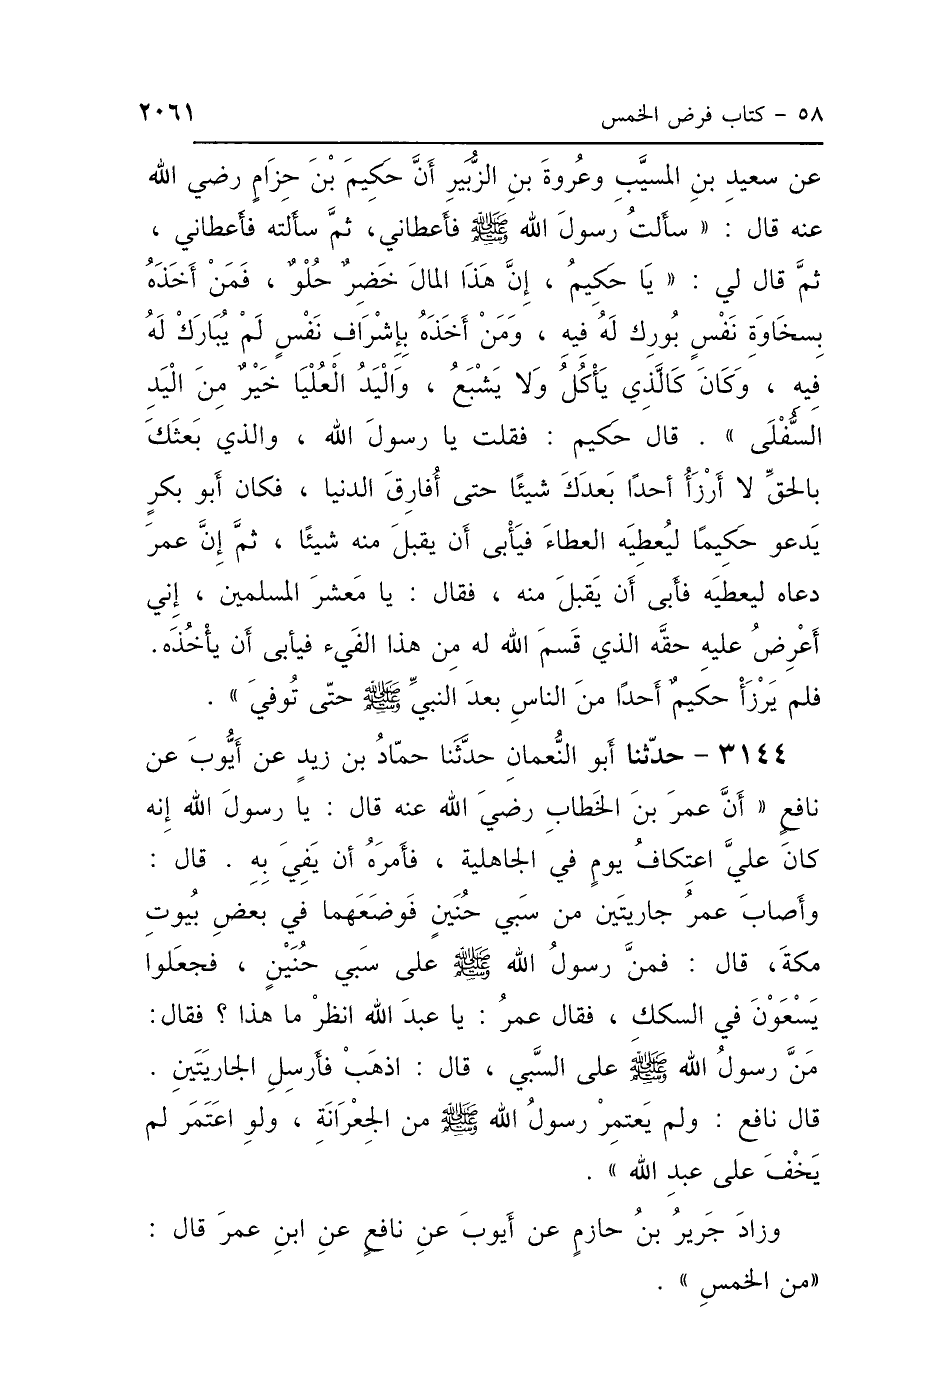 ٥٨ - كتاب فرض الخمس ٢٠٦١
عن سعيدِ بنِ المسيَّبِ وعُروةَ بنِ الزُّبَيرِ أَنَّ حَكِيمَ بْنَ حِزَامٍ رضي الله
عنه قال : « سألتُ رسولَ الله ﷺ فأَعطاني، ثمَّ سأَلته فأَعطاني ،
ثمَّ قال لي : « يَا حَكِيمُ ، إِنَّ هَذَا المالَ خَضِرٌ حُلْوٌ ، فَمَنْ أَخَذَهُ
بِسخَاوَةِ نَفْسٍ بُورِك لَهُ فيهِ ، وَمَنْ أَخَذَهُ بِإِشْرَافِ نَفْسٍ لَمْ يُبَارَكْ لَهُ
فِيهِ ، وَكَانَ كَالَّذِي يَأْكُلُ وَلا يَشْبَعُ ، وَالْيَدُ الْعُلْيَا خَيْرٌ مِنَ الْيَدِ
السُّفْلَى » . قال حَكِيم : فقلت يا رسولَ الله ، والذي بَعثَكَ
بالحقِّ لا أَرْزَأُ أحدًا بَعدَكَ شيئًا حتى أُفارِقَ الدنيا ، فكان أَبو بكرٍ
يَدعو حَكِيمًا ليُعطِيَه العطاءَ فيَأْبى أَن يقبلَ منه شيئًا ، ثمَّ إِنَّ عمرَ
دعاه ليعطيَه فأَبى أَن يَقبلَ منه ، فقال : يا مَعشرَ المسلمين ، إِني
أَعْرِضُ عليهِ حقَّه الذي قَسمَ الله له مِن هذا الفَيءِ فيأبى أَن يأْخُذَه.
فلم يَرْزَأْ حكيمٌ أَحدًا منَ الناسِ بعدَ النبيِّ ﷺ حتّى تُوفيَ » .
٣١٤٤ - حدّثنا أبو النُّعمانِ حدَّثَنا حمّادُ بن زيدٍ عن أَيُّوبَ عن
نافعٍ « أَنَّ عمرَ بنَ الخَطابِ رضيَ الله عنه قال : يا رسولَ الله إنه
كانَ عليَّ اعتِكافُ يومٍ في الجاهلية ، فأَمرَهُ أن يَفِيَ بِهِ . قال :
وأَصابَ عمرُ جاريتَين من سَبي حُنَينٍ فَوضَعَهما في بعضِ بُيوتِ
مكةَ، قال : فمنَّ رسولُ الله ﷺ على سَبي حُنَيْنٍ ، فجعَلوا
يَسْعَوْنَ في السكك ، فقال عمرُ : يا عبدَ الله انظرْ ما هذا ؟ فقال:
مَنَّ رسولُ الله ﷺ على السَّبي ، قال : اذهَبْ فأَرسلِ الجاريَتَينِ .
قال نافع : ولم يَعتمِرْ رسولُ الله ﷺ من الجِعْرَانَةِ ، ولوِ اعَتَمَر لم
يَخْفَ على عبدِ الله » .
وزادَ جَريرُ بنُ حازمٍ عن أَيوبَ عنِ نافعٍ عنِ ابنِ عمرَ قال :
«من الخمسِ » .